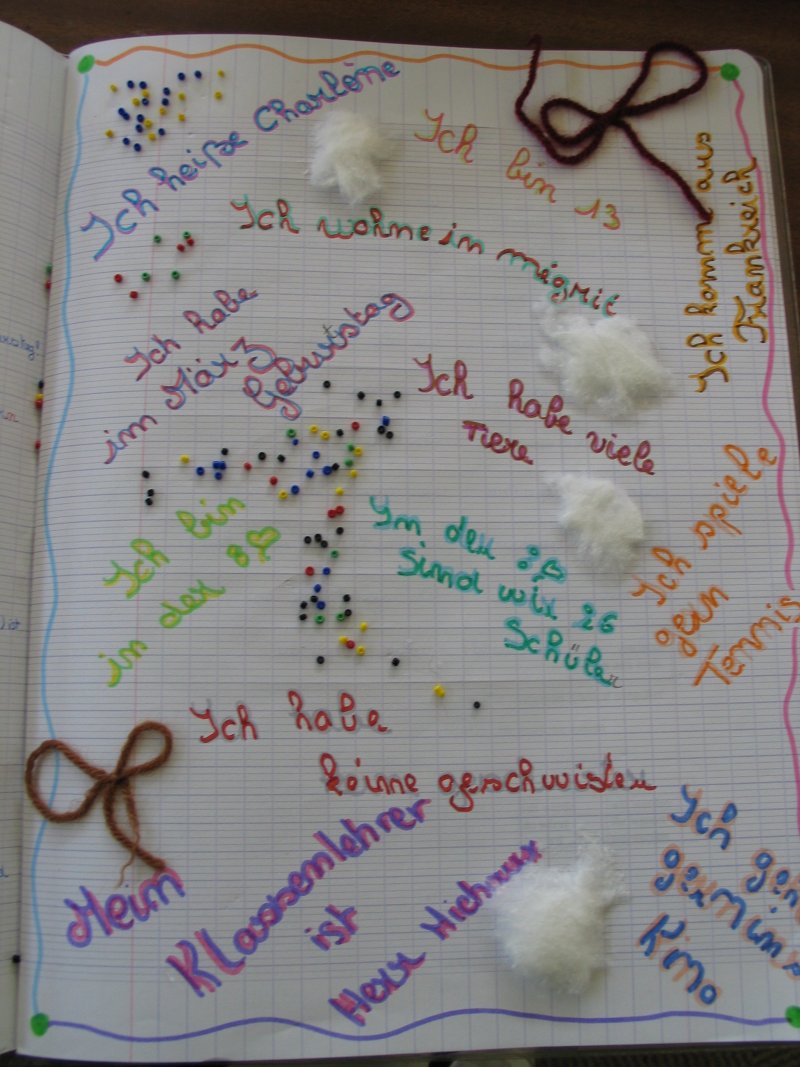 Ich heiße Charlène
Ich bin 13
Ich komm aus
Frankreich
Ich wohne in mégrit
Ich habe
im März
Geburtstag
Ich habe viele
Tiere
Ich bin
in der 8
Im der 8
Sind wir 26
Schüler
Ich spiele
gern
Tennis
Ich habe
keine geschwister
Mein
Klassenlehrer
ist
Herr
Ich
gern ins
Kino